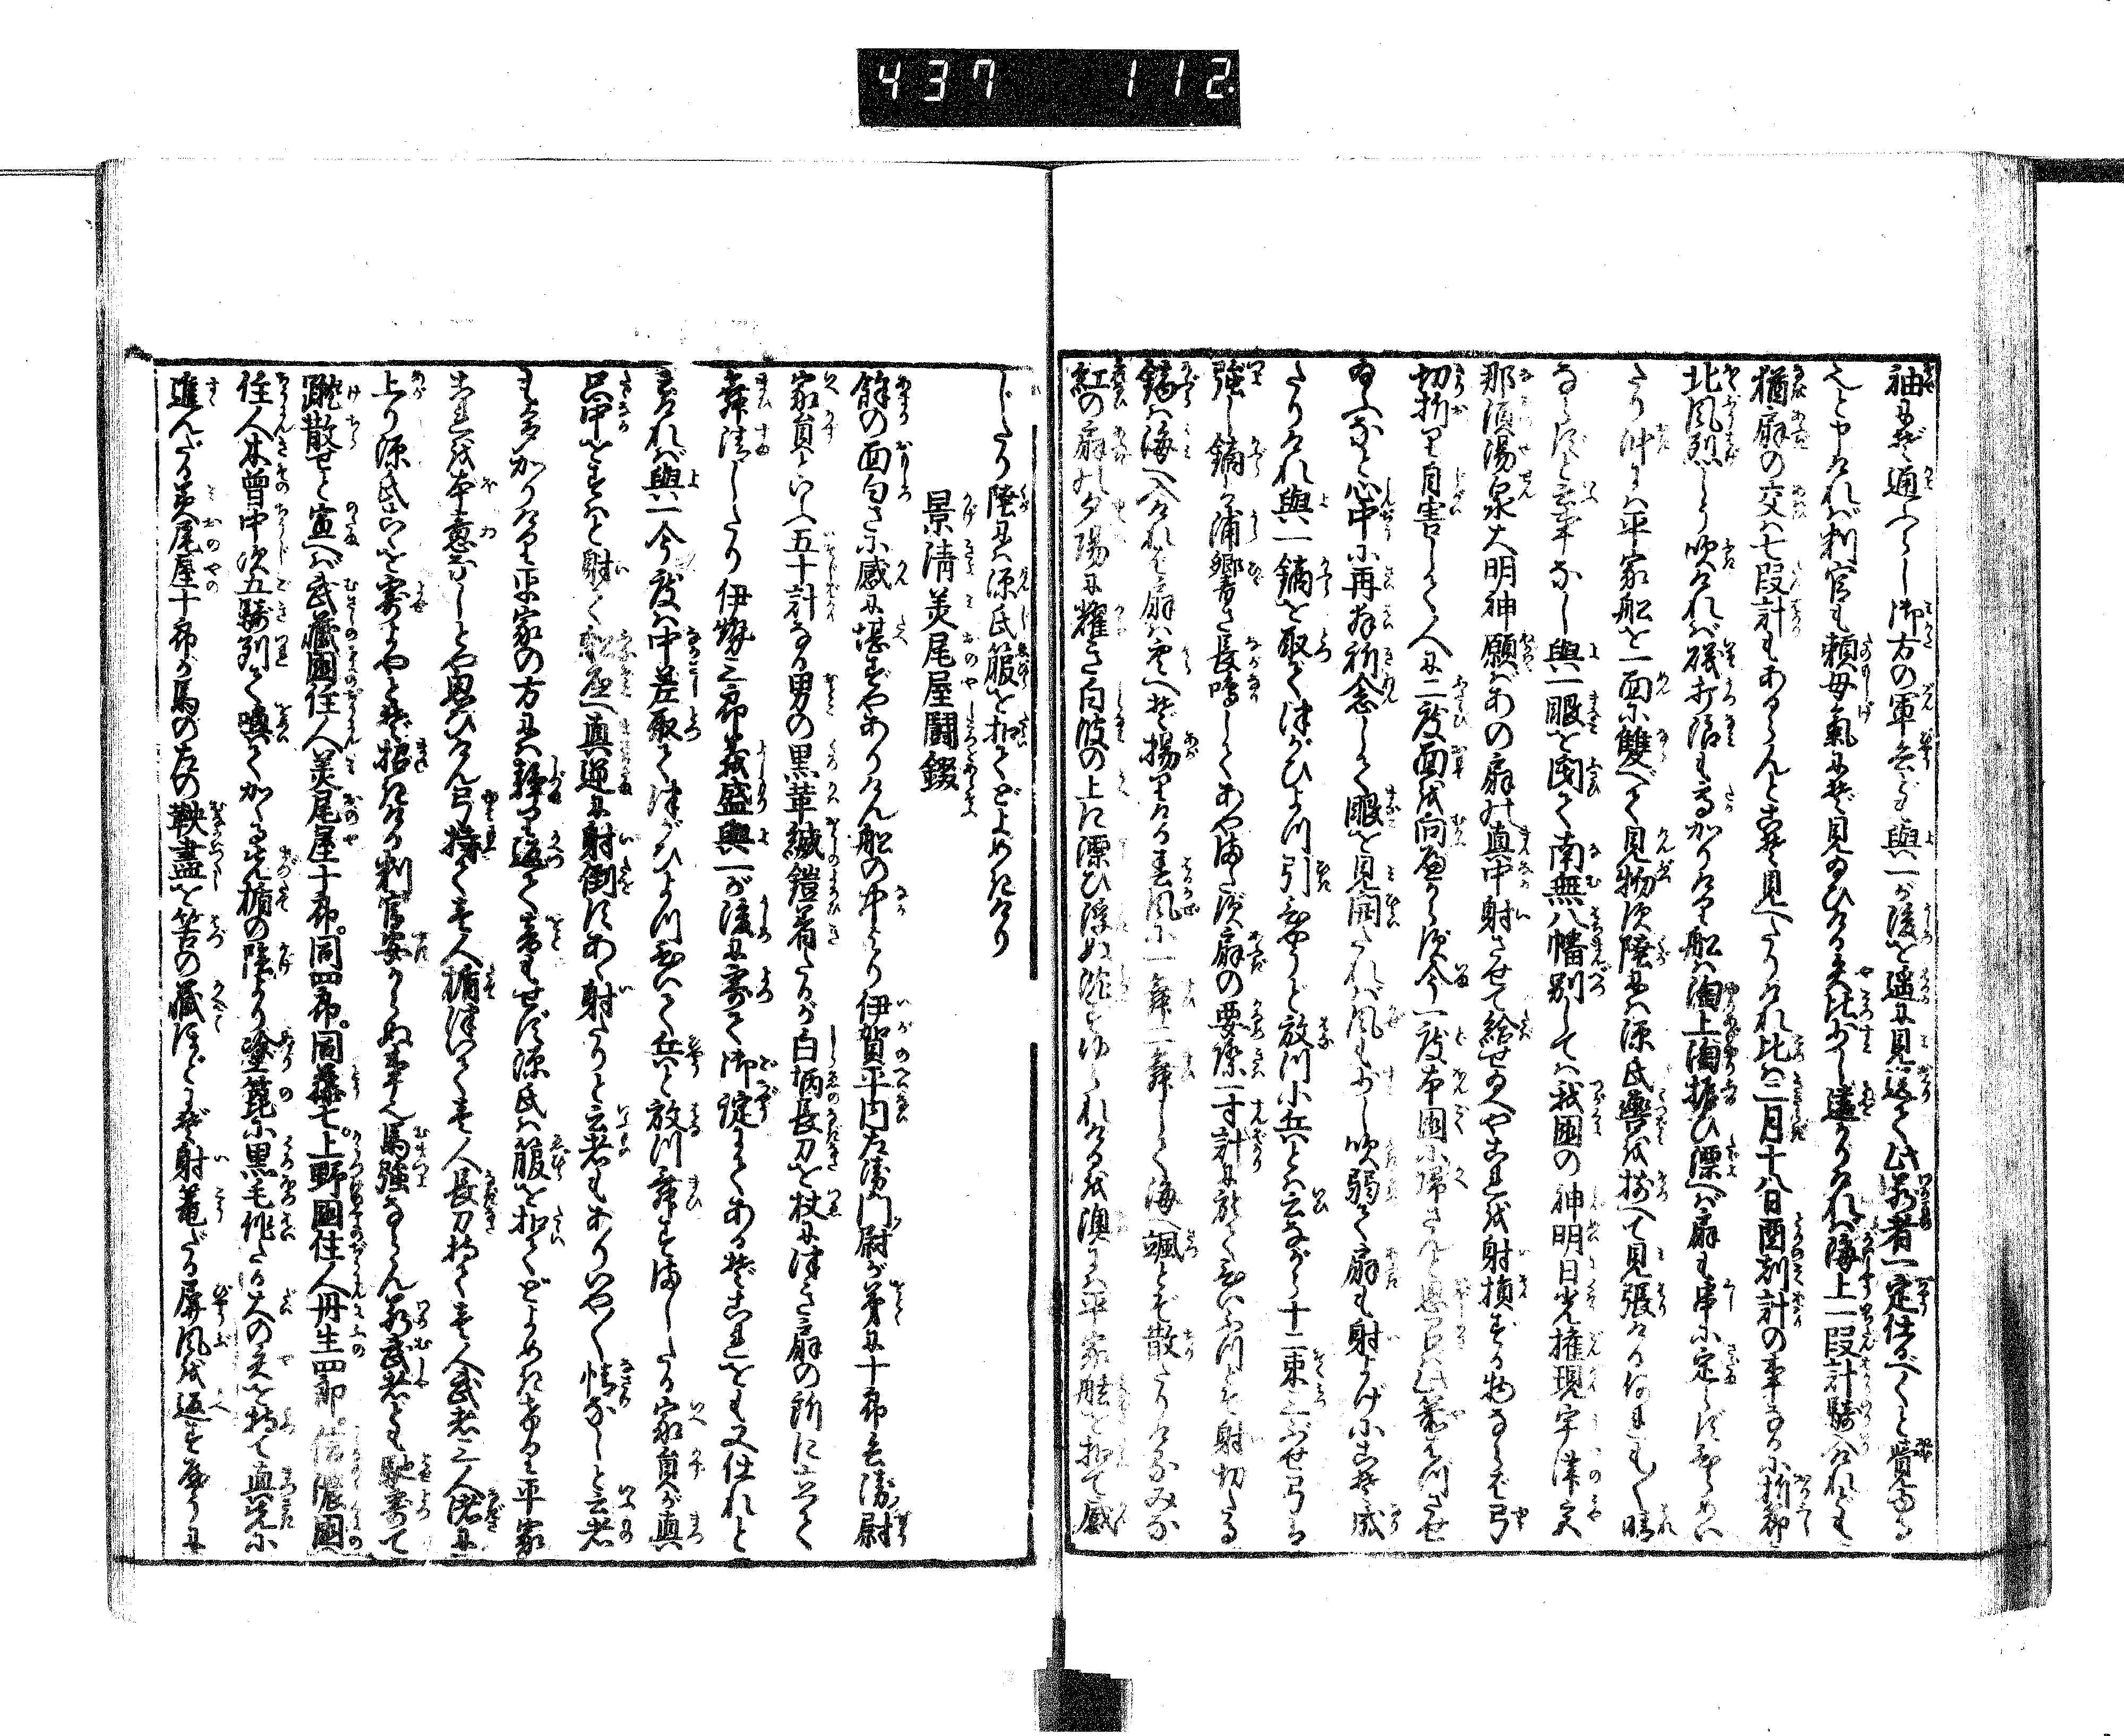 437 112.
袖にぞ通へし御方の軍兵ども與一が後を遥に見送て此若者一定仕るべしと覚ゆる
えと申ければ判官も頼母気にぞ見給ひける矢比少し遠かりければ海上一段計騎入けれども
猶扇の交は七段計もあるらんとこそ見へたりけれ比は二月十八日酉刻計の事なるに折節
北風烈しう吹ければ磯打浪も高かりけり船は淘上淘据ひ漂へば扇も串に定らずひらめい
たり沖には平家船を一面に雙べて見物す陸には源氏轡を揃へて見張ける何れも〳〵晴
ならずと云事なし與一眼を閉て南無八幡別しては我国の神明日光権現宇津宮
那須湯泉大明神願ばあの扇の真中射させて給せ給へやこれを射損ずる物ならば弓
切折り自害して人に二度面を向べからず今一度本国に帰さんと思召ば此箭はづさせ
給ふなと心中に再拝祈念して眼を見開たれば風も少し吹弱て扇も射よげにこそ成
たりけれ與一鏑を取てつがひよつ引ひやうど放つ小兵とは云ながら十二束三ぶせ弓は
強し鏑は浦響まで長鳴してあやまたず扇の要際一寸計に於てひいふつとぞ射切たる
鏑は海へ入ければ扇は空へぞ揚りける春風に一舞二舞して海へ颯とぞ散たりけるみな
紅の扇の夕陽に耀き白波の上に漂ひ浮ぬ沈ぬゆられけるを澳には平家舷を扣て感
じたり陸には源氏箙を扣てどよめきけり
景清美尾屋闘錣
餘の面白さに感に堪ずやありけん船の中より伊賀平内左衛門尉が弟に十郎兵衛尉
家員とて五十計なる男の黒革縅鎧着たるが白柄長刀を杖につき扇の所に立て
舞清したり伊勢三郎義盛與一が後に寄て御諚にてあるぞこれをも又仕れと
云ければ與一今度は中差取てつがひよつ引て兵と放つ舞すましたる家員が真
只中をひやうと射て船底へ真逆に射倒すあ射たりと云者もありいや〳〵情なしと云者
も多かりけり平家の方には静り返て音もせず源氏は箙を扣てどよめきけり平家
これを本意なしとや思ひけん弓持て一人楯ついて一人長刀持て一人武者三人渚に
上り源氏こゝを寄よやとぞ招ける判官安からぬ事也馬強ならん若武者ども馳寄て
蹴散せと宣へば武蔵国住人美尾屋十郎。同四郎。同藤七。上野国住人丹生四郎。信濃国
住人木曽中次五騎列て喚てかゝる先楯の陰より塗箆に黒毛作たる大の矢を持て真先に
進んだる美尾屋十郎が馬の左の鞅盡を筈の蔵ほどにぞ射篭だる屏風を返す様に